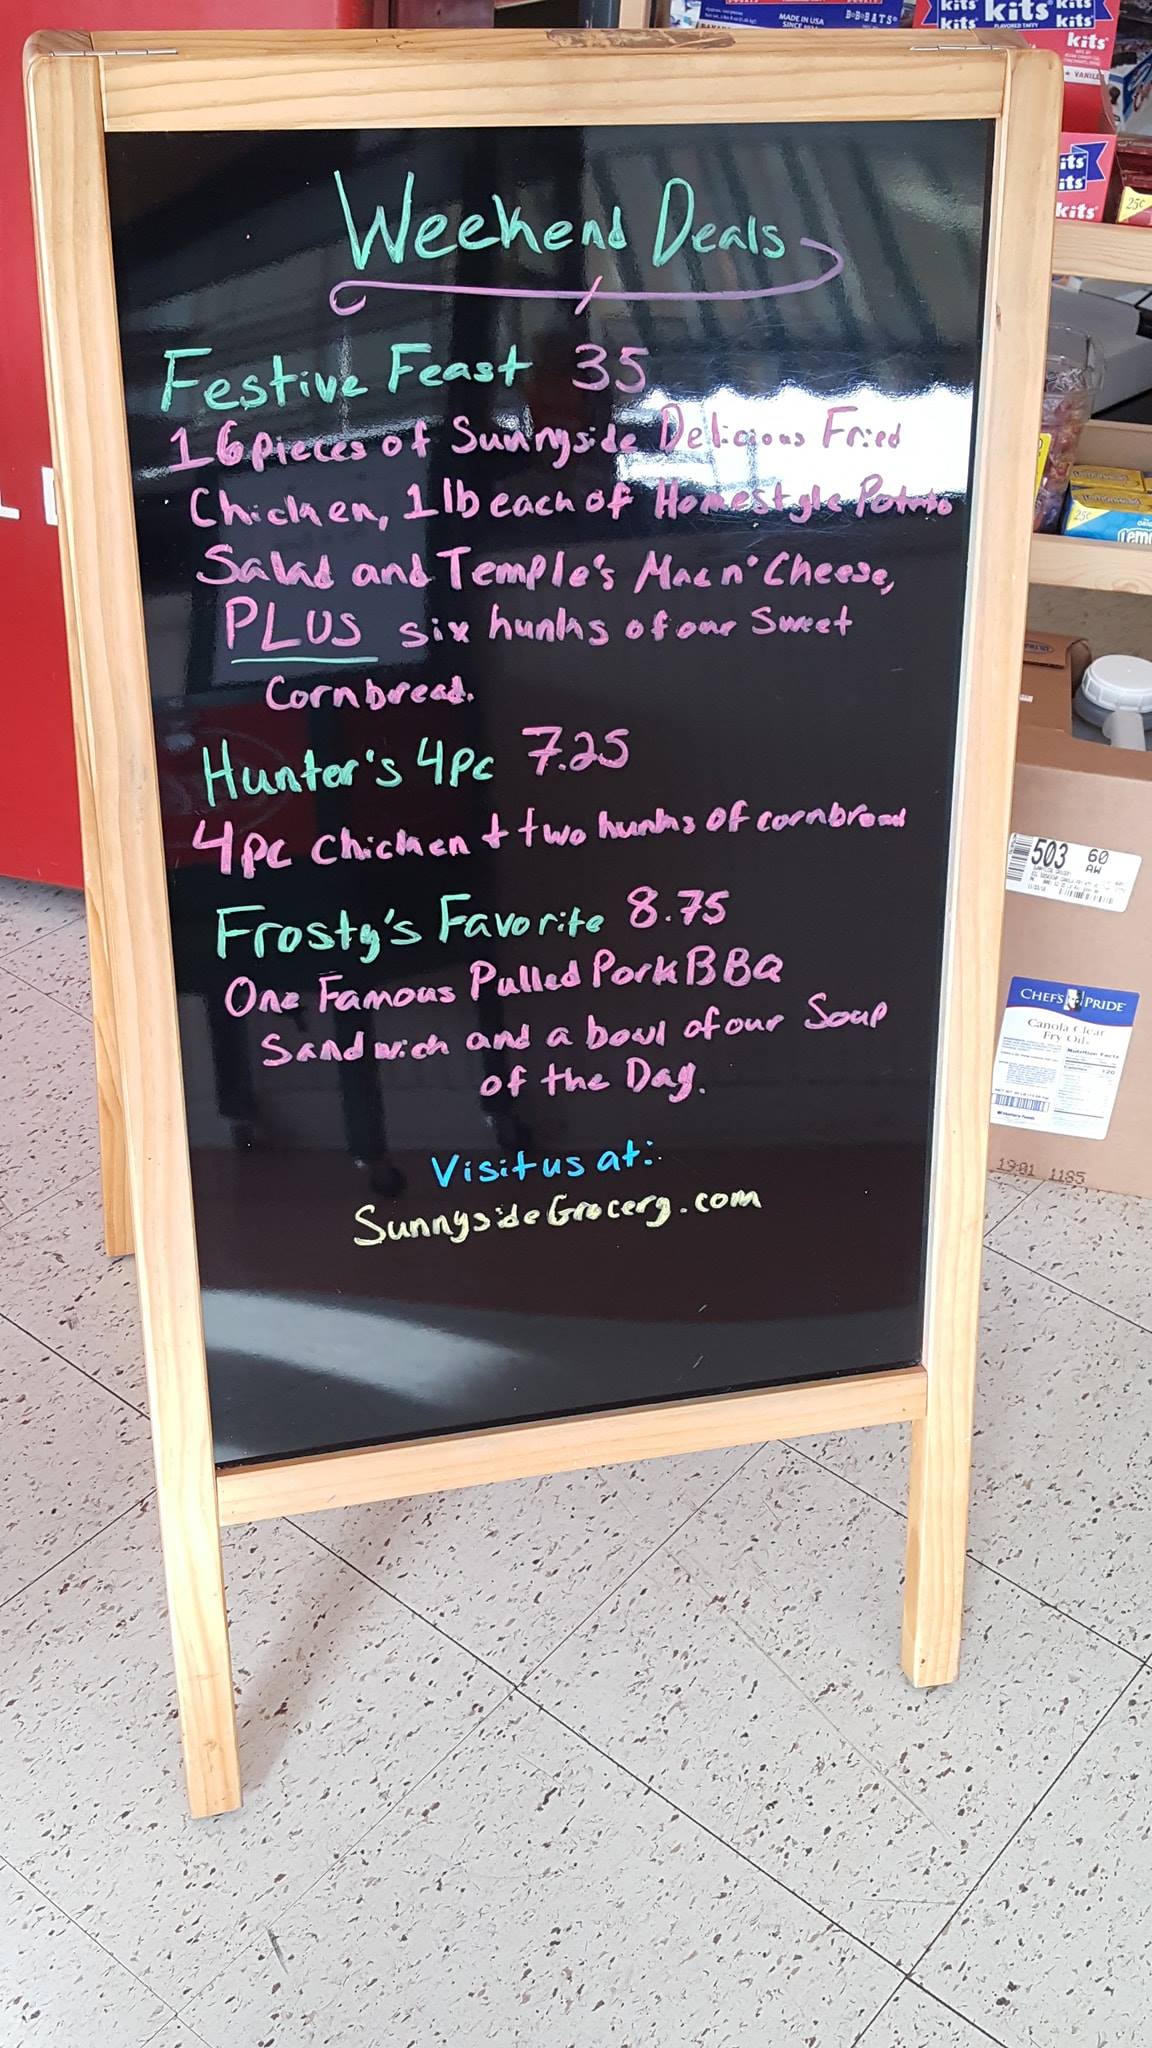 Weekend Deals
Festive Feast 35
16 pieces of Sunnyside Delicious Fried
Chicken, 1 lb each of Homestyle Potato
Salad and Temple's Mac n' Cheese,
PLUS six hunks of our Sweet
Cornbread.
Hunter's 4pc 7.25
4pc chicken + two hunks of cornbread
Frosty's Favorite 8.75
One Famous Pulled Pork BBQ
Sandwich and a bowl of our Soup
of the Day.
Visit us at:
SunnysideGrocery.com
MADE IN USA
SINCE
BoBoBATS
kits
kits
kits
FLAVORED TAFFY
kits
kits
kits
VANILL
its
its
kits
25¢
25¢
Lem
503 60
AW
CHEF'S PRIDE
Canola Clear
Fry Oil
Nutrition Facts
120
1901 1185